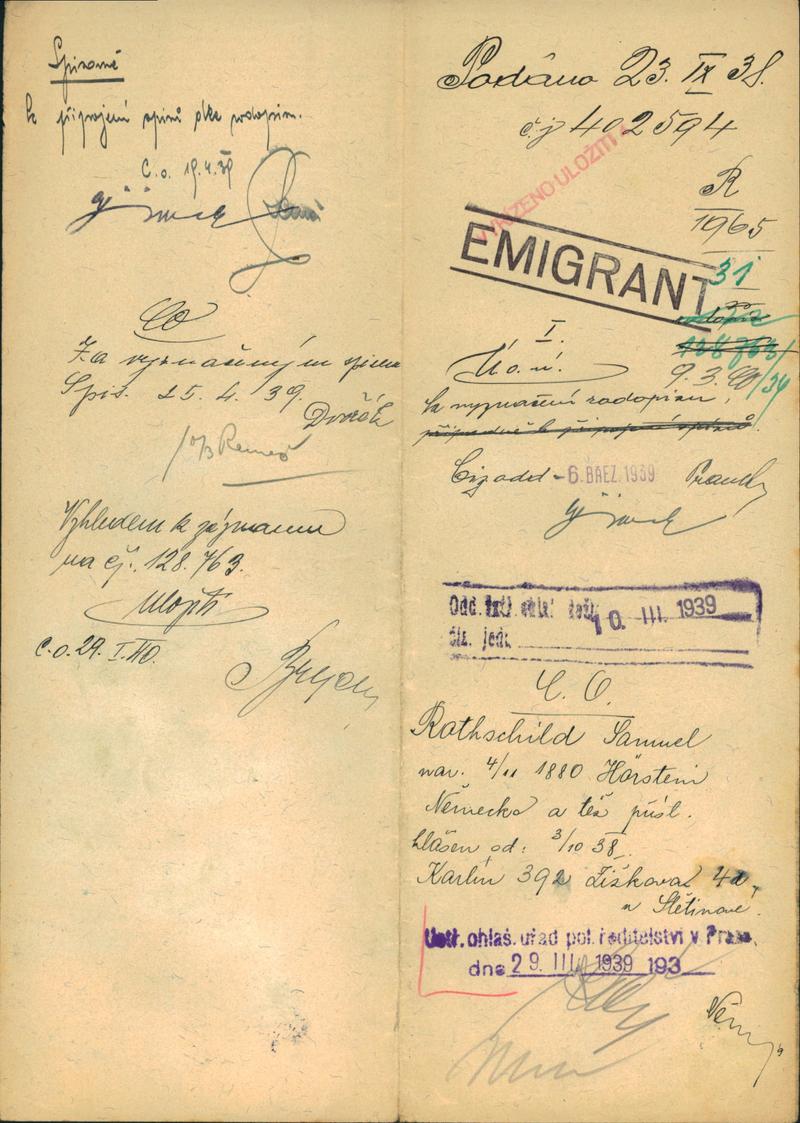 Spisovně
k připojení spisů dle rodopisu.
C. o. 19.4.39
CO
Za vyznačeným spisem
Spis. 25. 4. 39.
Dvořák
Vzhledem k záznamu
na čj. 128.763.
Uložit
C. o. 29. I. 40.
Podáno 23. IX 38.
čj 402594
VYŘÍZENO ULOŽITI
R
1965
31
EMIGRANT
I.
Ú. o. ú.
9. 3.
k vyznačení rodopisu,
případně k připojení spisů.
Ciz odd - 6. BŘEZ. 1939
10. III. 1939
čís. jedn.
C. O.
Rothschild Samuel
nar. 4/11 1880 Hörstein
Německo a též přísl.
hlášen od: 3/10 38.
Karlín 392 Žižkova 4a,
u Stětinové.
Ústř. ohlaš. úřad pol. ředitelství v Praze.
dne 29. III. 1939 193